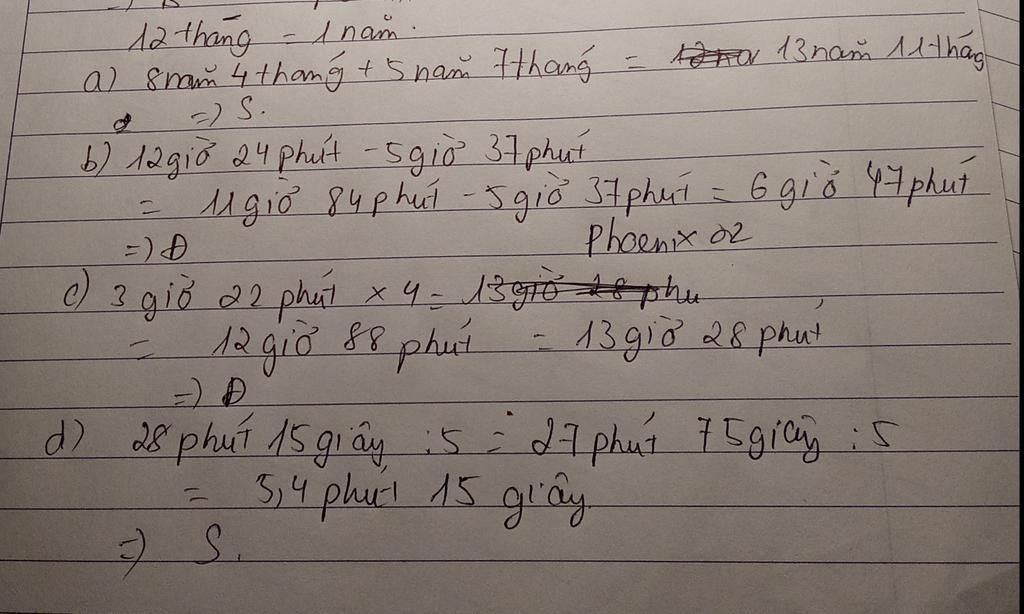 12 tháng = 1 năm.
a) 8 năm 4 tháng + 5 năm 7 tháng = 13 năm 11 tháng
=) S.
b) 12 giờ 24 phút - 5 giờ 37 phút
= 11 giờ 84 phút - 5 giờ 37 phút = 6 giờ 47 phút
=) Đ Phoenix 02
c) 3 giờ 22 phút x 4 = 13 giờ 28 phu
= 12 giờ 88 phút = 13 giờ 28 phút
=) Đ
d) 28 phút 15 giây : 5 = 27 phút 75 giây : 5
= 5,4 phút 15 giây
=) S.